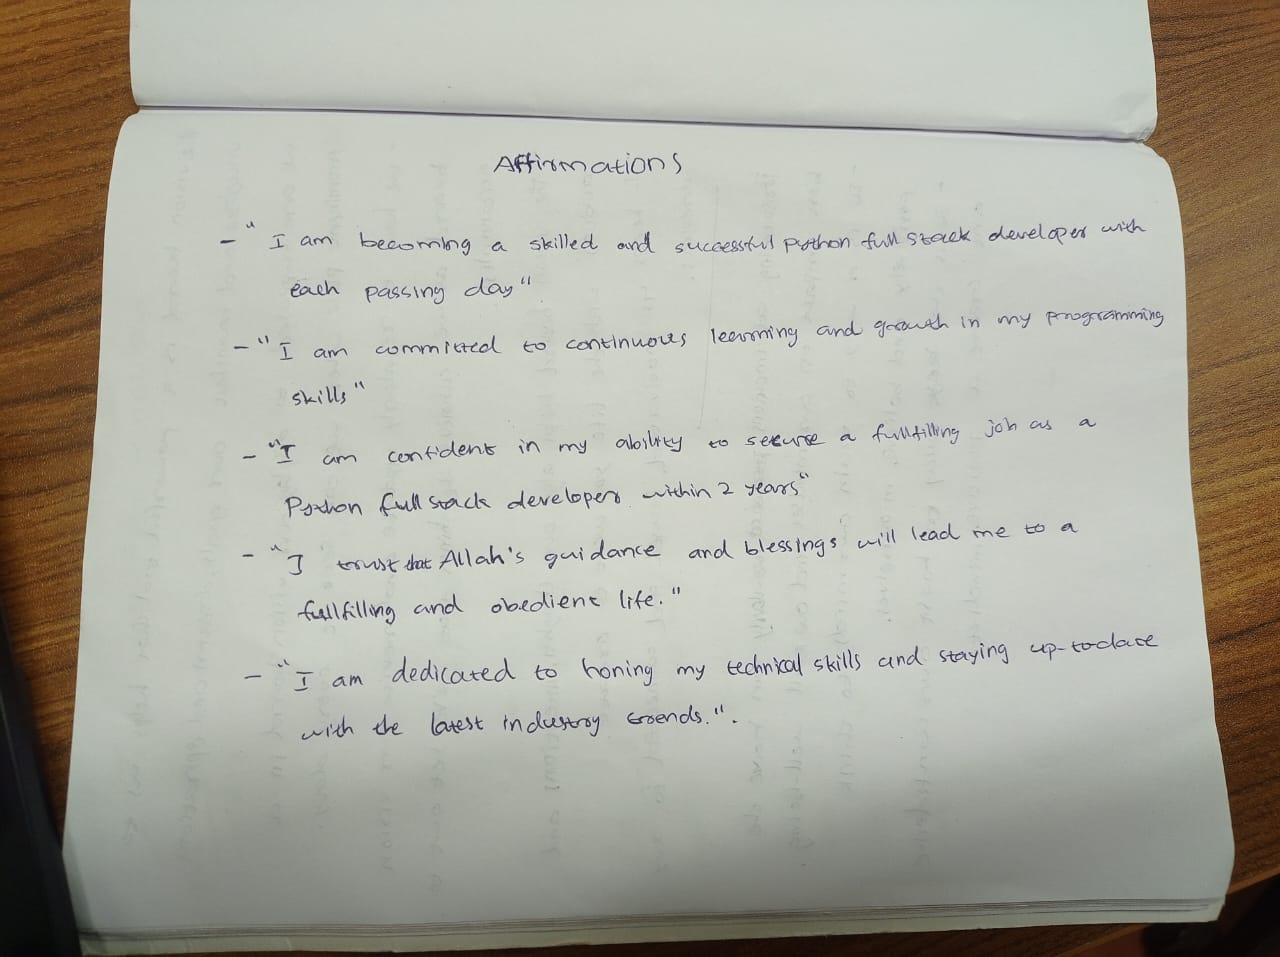 Affirmations
- "I am becoming a skilled and successful python full stack developer with
each passing day"
- "I am committed to continuous learning and growth in my programming
skills"
- "I am confident in my ability to secure a fullfilling job as a
Python full stack developer within 2 years"
- "I trust that Allah's guidance and blessings will lead me to a
fullfilling and obedient life."
- "I am dedicated to honing my technical skills and staying up-to-date
with the latest industry trends.".